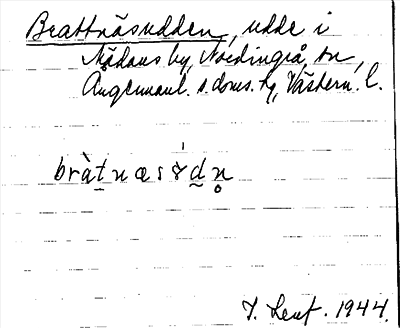 Brattnäsudden, udde i
Mädans by, Nordingrå sn,
Ångermanl. s. doms. hg, Västern. l.
bràtnæsɤdn̥
J. Leuf. 1944.